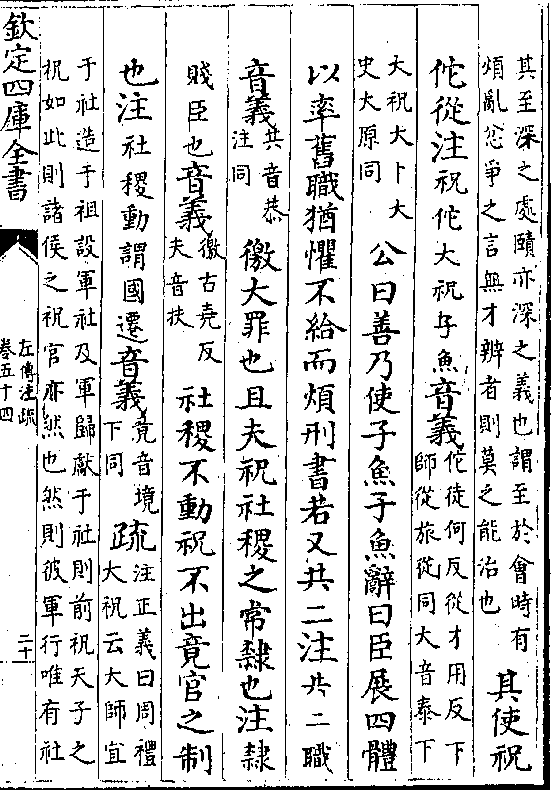 其至深之處賾亦深之義也謂至於會時有
煩亂忿爭之言無才辨者則莫之能治也
其使祝
佗從注祝佗大祝子魚音義
佗徒何反從才用反下
師從旅從同大音泰下
大祝大卜大
史大原同
公曰善乃使子魚子魚辭曰臣展四體
以率舊職猶懼不給而煩刑書若又共二注共二職
音義
共音恭
注同
徼大罪也且夫祝社稷之常隸也注隸
賤臣也音義
徼古堯反
夫音扶
社稷不動祝不出竟官之制
也注社稷動謂國遷音義
竟音境
下同
疏
注正義曰周禮
大祝云大師宜
于社造于祖設軍社及軍歸獻于社則前祝天子之
祝如此則諸侯之祝官亦然也然則彼軍行唯有社
欽定四庫全書
左傳注疏
卷五十四
二十